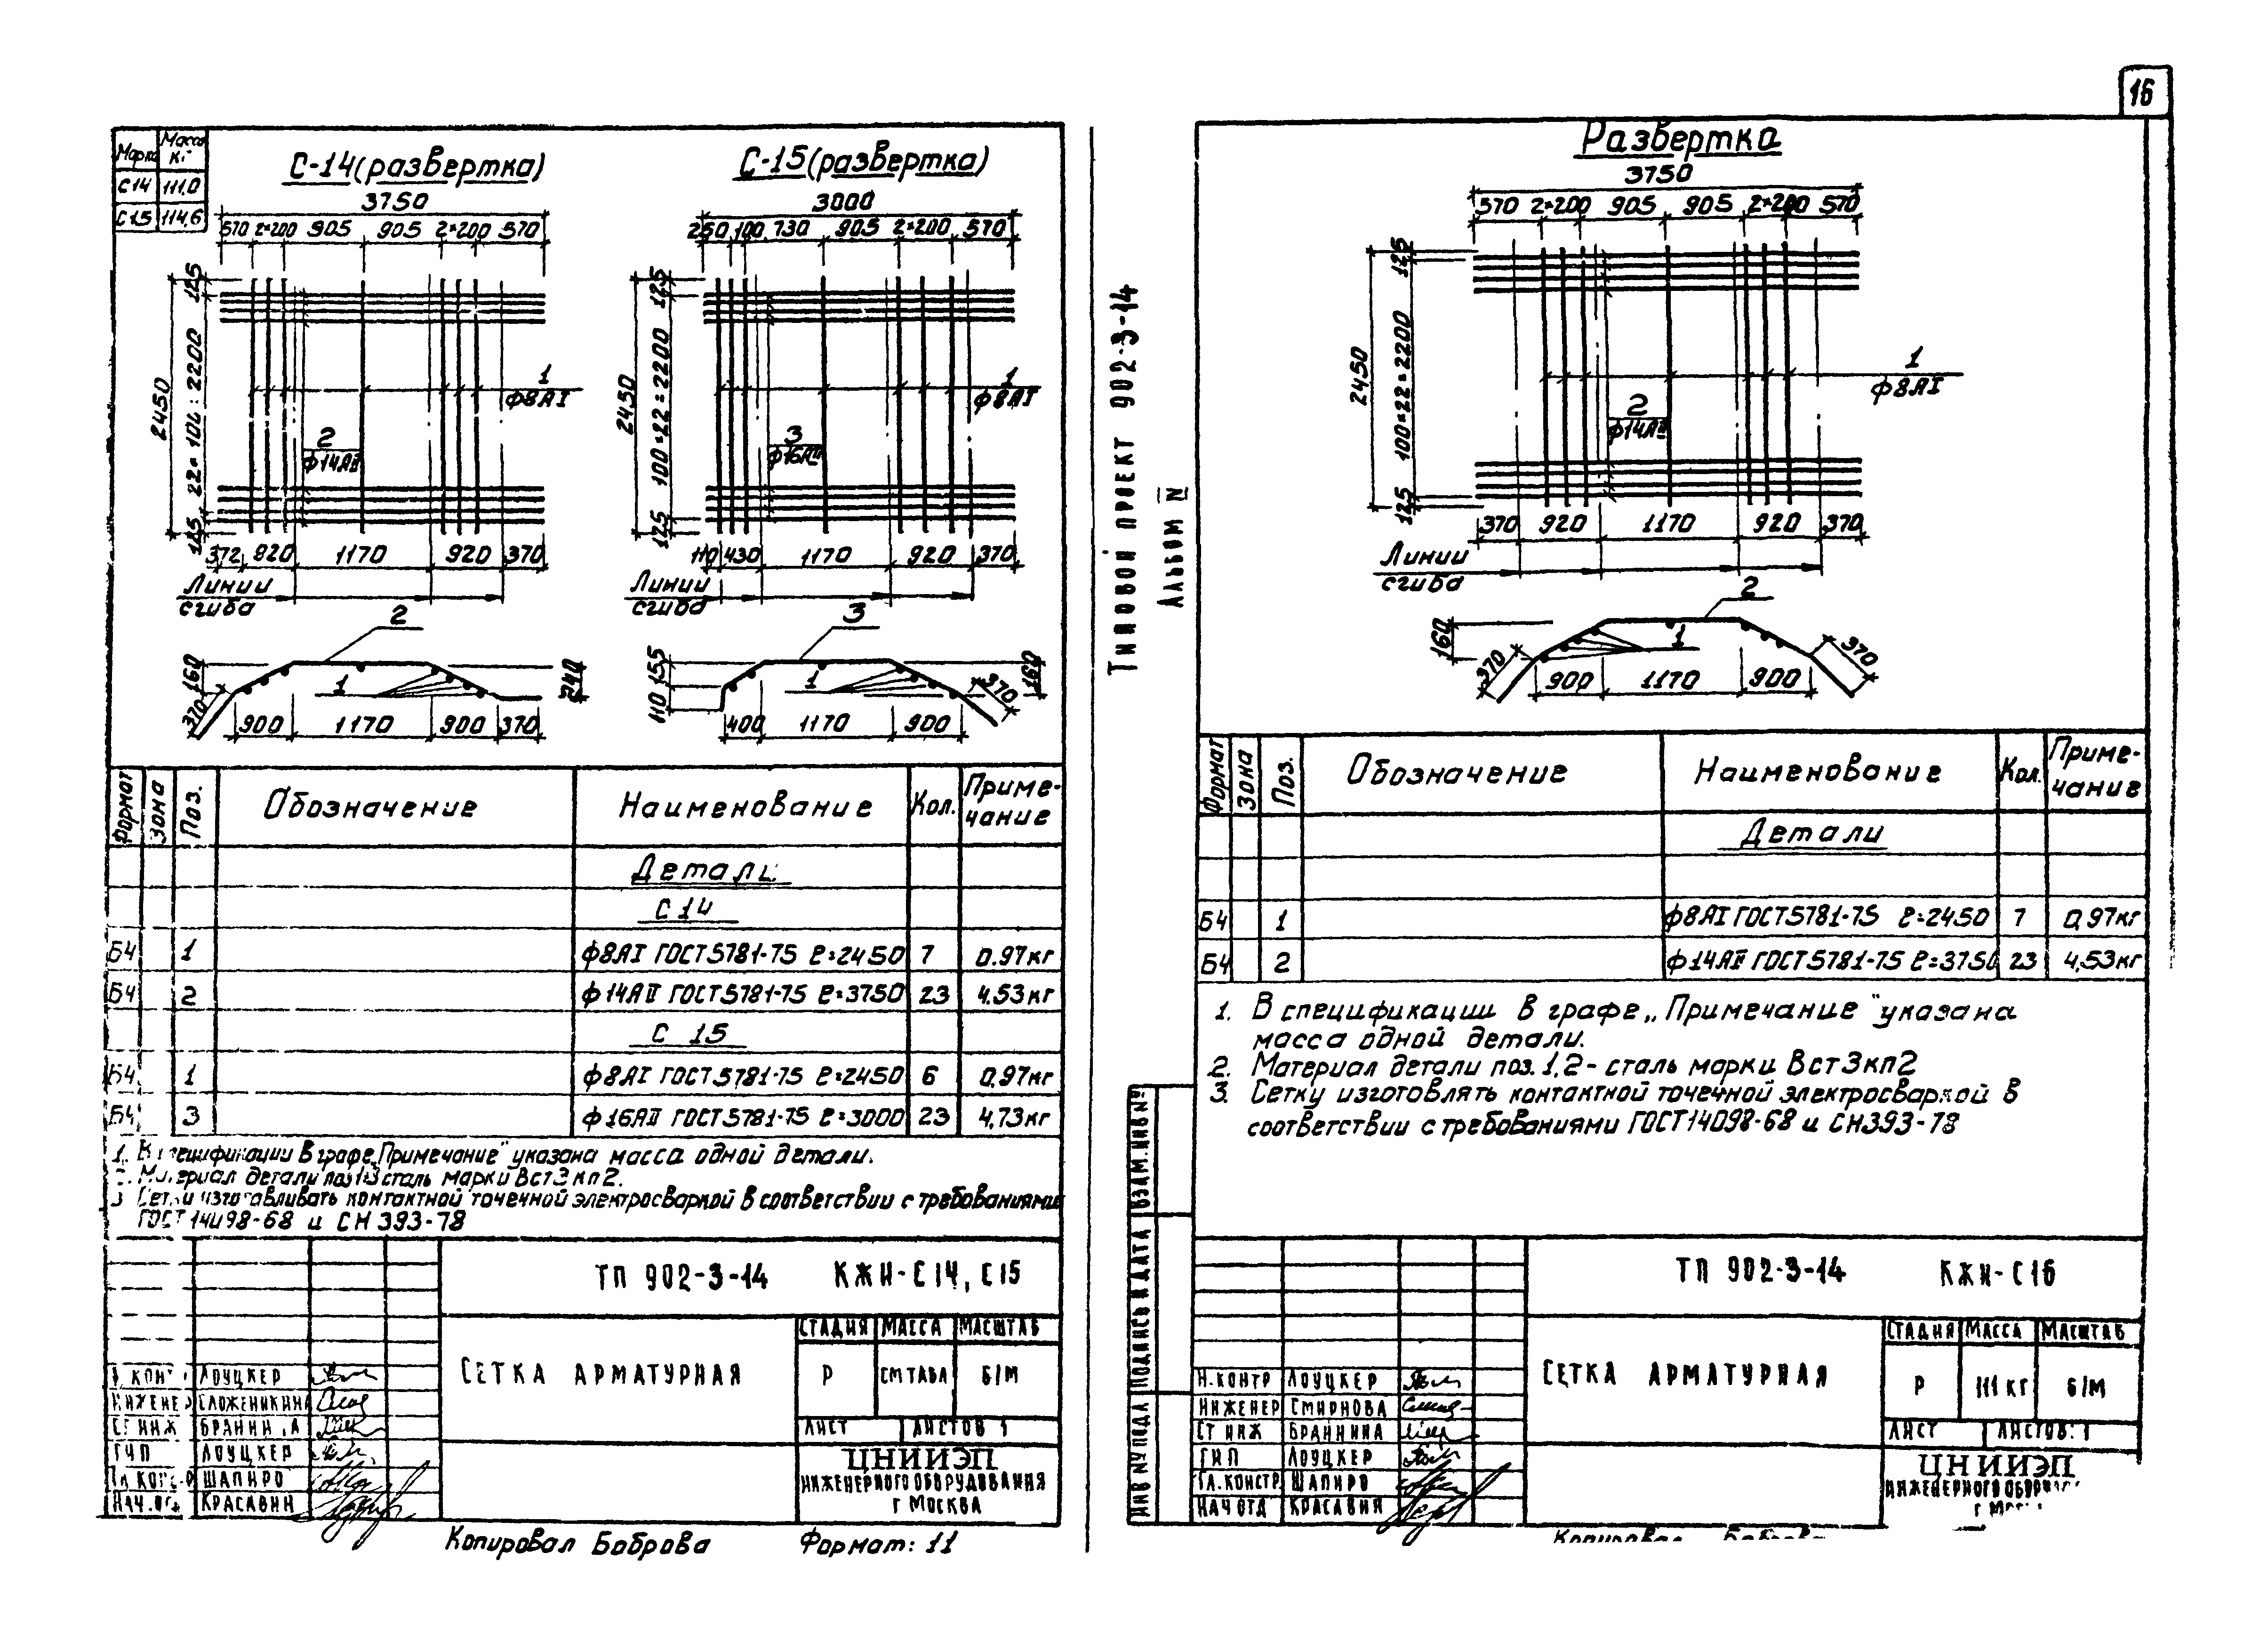 16
Марка Масса кг
С14 111,0
С15 114,6
С-14 (развертка)
3750
570 2×200 905 905 2×200 570
125
22×100=2200
2450
125
1
ф8АI
2
ф14АII
372 920 1170 920 370
Линии
сгиба
2
160
240
1
370 900 1170 900 370
С-15 (развертка)
3000
250 100 730 905 2×200 570
125
100×22=2200
2450
125
1
ф8АI
3
ф16АII
110 430 1170 920 370
Линии
сгиба
3
155
110
160
370
1
400 1170 900
Формат Зона Поз. Обозначение Наименование Кол. Примечание
Детали
С 14
Б4 1 ф8АI ГОСТ5781-75 ℓ=2450 7 0.97кг
Б4 2 ф14АII ГОСТ5781-75 ℓ=3750 23 4.53кг
С 15
Б4 1 ф8АI ГОСТ5781-75 ℓ=2450 6 0,97кг
Б4 3 ф16АII ГОСТ5781-75 ℓ=3000 23 4,73кг
1. В спецификации в графе „Примечание" указана масса одной детали.
2. Материал детали поз 1÷3 сталь марки Вст3кп2.
3 Сетки изготавливать контактной точечной электросваркой в соответствии с требованиями
ГОСТ 14098-68 и СН 393-78
ТП 902-3-14 КЖИ-С14, С15
СЕТКА АРМАТУРНАЯ
СТАДИЯ МАССА МАСШТАБ
Р СМ ТАБЛ Б/М
ЛИСТ ЛИСТОВ 1
ЦНИИЭП
ИНЖЕНЕРНОГО ОБОРУДОВАНИЯ
Г МОСКВА
Н. КОНТР ЛОУЦКЕР
ИНЖЕНЕР СЛОЖЕНИКИНА
СТ ИНЖ БРАНИНА
ГИП ЛОУЦКЕР
ГЛ КОНСТР ШАПИРО
НАЧ.ОТД КРАСАВИН
Копировал Боброва Формат: 11
ТИПОВОЙ ПРОЕКТ 902-3-14
АЛЬБОМ IV
Развертка
3750
570 2×200 905 905 2×200 570
125
100×22=2200
2450
125
1
ф8АI
2
ф14АII
370 920 1170 920 370
Линии
сгиба
2
160
1
370 900 1170 900 370
Формат Зона Поз. Обозначение Наименование Кол. Примечание
Детали
Б4 1 ф8АI ГОСТ5781-75 ℓ=2450 7 0,97кг
Б4 2 ф14АII ГОСТ5781-75 ℓ=3750 23 4,53кг
1. В спецификации в графе „Примечание" указана
масса одной детали.
2. Материал детали поз. 1,2 - сталь марки Вст3кп2
3. Сетку изготовлять контактной точечной электросваркой в
соответствии с требованиями ГОСТ14098-68 и СН393-78
ВЗАМ.ИНВ№
ПОДПИСЬ И ДАТА
ИНВ № ПОДЛ
ТП 902-3-14 КЖИ-С16
СЕТКА АРМАТУРНАЯ
СТАДИЯ МАССА МАСШТАБ
Р 111 КГ Б/М
ЛИСТ ЛИСТОВ: 1
ЦНИИЭП
ИНЖЕНЕРНОГО
Н.КОНТР ЛОУЦКЕР
ИНЖЕНЕР СМИРНОВА
СТ ИНЖ БРАННИНА
ГИП ЛОУЦКЕР
ГЛ.КОНСТР ШАПИРО
НАЧ ОТД КРАСАВИН
Копировал Боброва